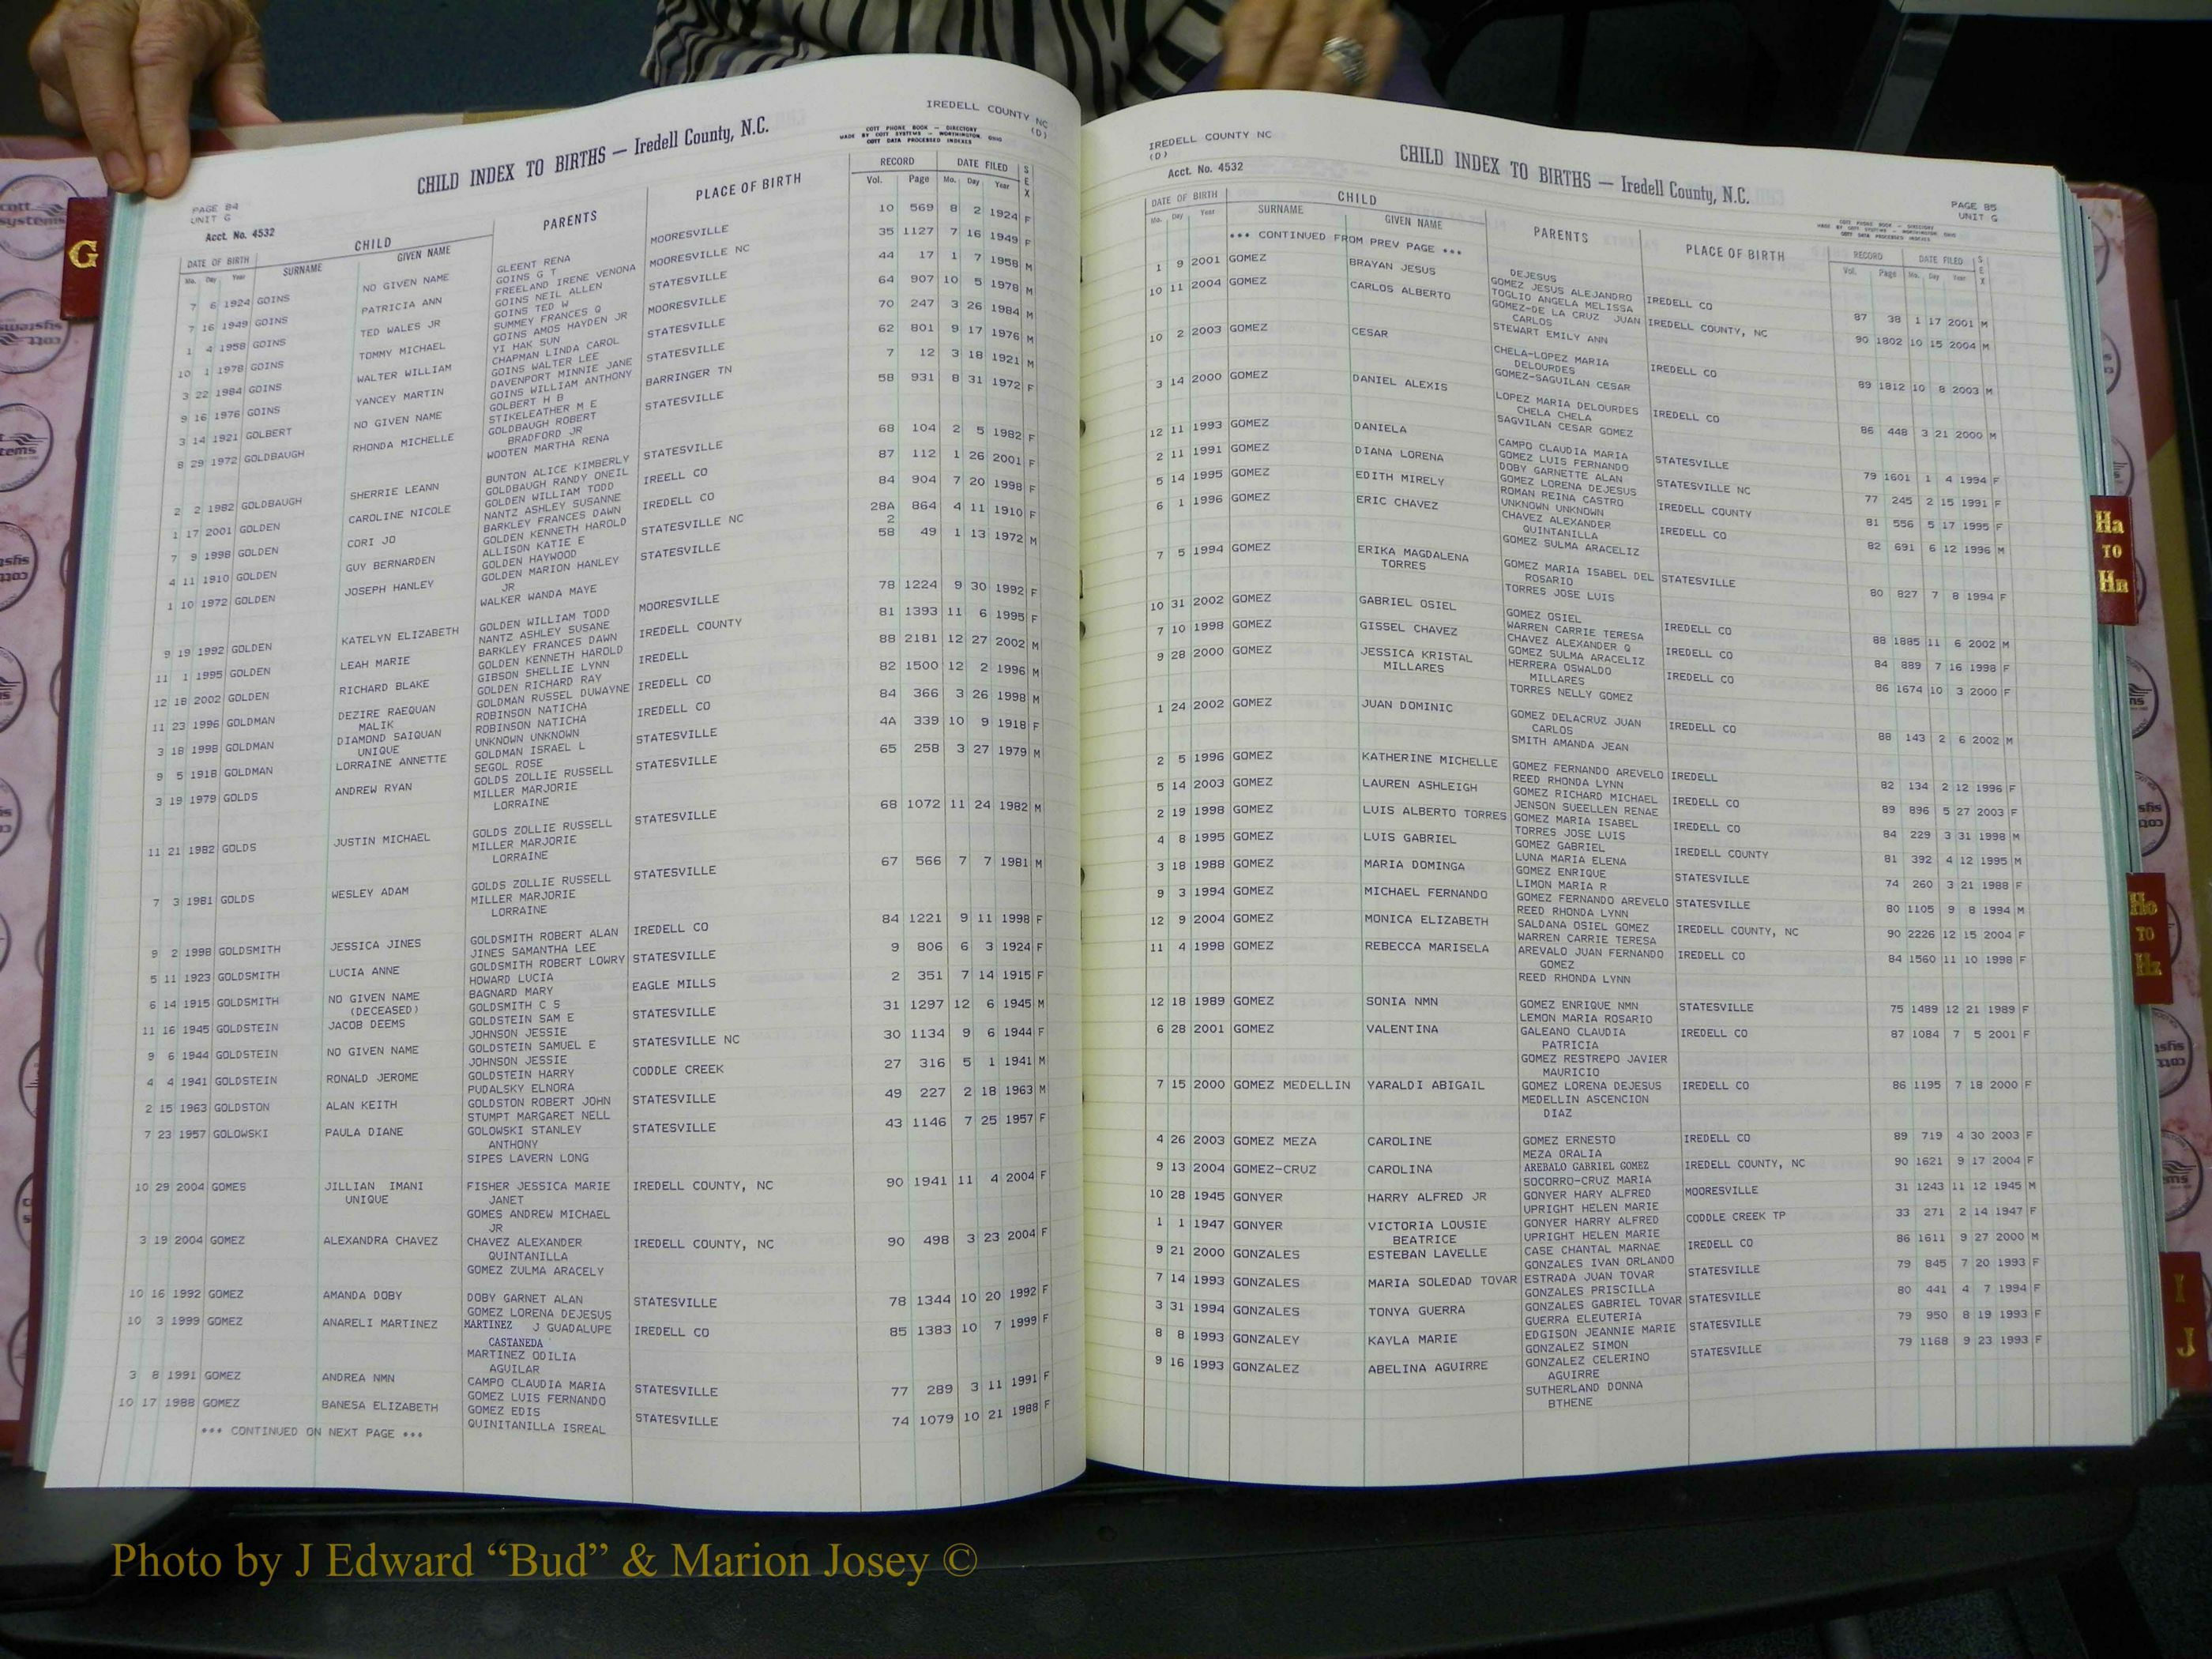 IREDELL COUNTY NC
(D)
CHILD INDEX TO BIRTHS — Iredell County, N.C.
COTT PHONE BOOK — DIRECTORY
MADE BY COTT SYSTEMS — WORTHINGTON, OHIO
COTT DATA PROCESSED INDEXES
PAGE 84
UNIT G
Acct. No. 4532
DATE OF BIRTH CHILD PARENTS PLACE OF BIRTH RECORD DATE FILED SEX
Mo. Day Year SURNAME GIVEN NAME Vol. Page Mo. Day Year
7 6 1924 GOINS NO GIVEN NAME GLEENT RENA MOORESVILLE 10 569 8 2 1924 F
GOINS G T
7 16 1949 GOINS PATRICIA ANN FREELAND IRENE VENONA MOORESVILLE NC 35 1127 7 16 1949 F
GOINS NEIL ALLEN
1 4 1958 GOINS TED WALES JR GOINS TED W STATESVILLE 44 17 1 7 1958 M
SUMMEY FRANCES Q
10 1 1978 GOINS TOMMY MICHAEL GOINS AMOS HAYDEN JR MOORESVILLE 64 907 10 5 1978 M
YI HAK SUN
3 22 1984 GOINS WALTER WILLIAM CHAPMAN LINDA CAROL STATESVILLE 70 247 3 26 1984 M
GOINS WALTER LEE
9 16 1976 GOINS YANCEY MARTIN DAVENPORT MINNIE JANE STATESVILLE 62 801 9 17 1976 M
GOINS WILLIAM ANTHONY
3 14 1921 GOLBERT NO GIVEN NAME GOLBERT H B BARRINGER TN 7 12 3 18 1921 M
STIKELEATHER M E
8 29 1972 GOLDBAUGH RHONDA MICHELLE GOLDBAUGH ROBERT STATESVILLE 58 931 8 31 1972 F
BRADFORD JR
WOOTEN MARTHA RENA
2 2 1982 GOLDBAUGH SHERRIE LEANN BUNTON ALICE KIMBERLY STATESVILLE 68 104 2 5 1982 F
GOLDBAUGH RANDY ONEIL
1 17 2001 GOLDEN CAROLINE NICOLE GOLDEN WILLIAM TODD IREELL CO 87 112 1 26 2001 F
NANTZ ASHLEY SUSANNE
7 9 1998 GOLDEN CORI JO BARKLEY FRANCES DAWN IREDELL CO 84 904 7 20 1998 F
GOLDEN KENNETH HAROLD
4 11 1910 GOLDEN GUY BERNARDEN ALLISON KATIE E STATESVILLE NC 28A 864 4 11 1910 F
GOLDEN HAYWOOD 2
1 10 1972 GOLDEN JOSEPH HANLEY GOLDEN MARION HANLEY STATESVILLE 58 49 1 13 1972 M
JR
WALKER WANDA MAYE
9 19 1992 GOLDEN KATELYN ELIZABETH GOLDEN WILLIAM TODD MOORESVILLE 78 1224 9 30 1992 F
NANTZ ASHLEY SUSANE
11 1 1995 GOLDEN LEAH MARIE BARKLEY FRANCES DAWN IREDELL COUNTY 81 1393 11 6 1995 F
GOLDEN KENNETH HAROLD
12 18 2002 GOLDEN RICHARD BLAKE GIBSON SHELLIE LYNN IREDELL 88 2181 12 27 2002 M
GOLDEN RICHARD RAY
11 23 1996 GOLDMAN DEZIRE RAEQUAN GOLDMAN RUSSEL DUWAYNE IREDELL CO 82 1500 12 2 1996 M
MALIK ROBINSON NATICHA
3 18 1998 GOLDMAN DIAMOND SAIQUAN ROBINSON NATICHA IREDELL CO 84 366 3 26 1998 M
UNIQUE UNKNOWN UNKNOWN
9 5 1918 GOLDMAN LORRAINE ANNETTE GOLDMAN ISRAEL L STATESVILLE 4A 339 10 9 1918 F
SEGOL ROSE
3 19 1979 GOLDS ANDREW RYAN GOLDS ZOLLIE RUSSELL STATESVILLE 65 258 3 27 1979 M
MILLER MARJORIE
LORRAINE
11 21 1982 GOLDS JUSTIN MICHAEL GOLDS ZOLLIE RUSSELL STATESVILLE 68 1072 11 24 1982 M
MILLER MARJORIE
LORRAINE
7 3 1981 GOLDS WESLEY ADAM GOLDS ZOLLIE RUSSELL STATESVILLE 67 566 7 7 1981 M
MILLER MARJORIE
LORRAINE
9 2 1998 GOLDSMITH JESSICA JINES GOLDSMITH ROBERT ALAN IREDELL CO 84 1221 9 11 1998 F
JINES SAMANTHA LEE
5 11 1923 GOLDSMITH LUCIA ANNE GOLDSMITH ROBERT LOWRY STATESVILLE 9 806 6 3 1924 F
HOWARD LUCIA
6 14 1915 GOLDSMITH NO GIVEN NAME BAGNARD MARY EAGLE MILLS 2 351 7 14 1915 F
(DECEASED) GOLDSMITH C S
11 16 1945 GOLDSTEIN JACOB DEEMS GOLDSTEIN SAM E STATESVILLE 31 1297 12 6 1945 M
JOHNSON JESSIE
9 6 1944 GOLDSTEIN NO GIVEN NAME GOLDSTEIN SAMUEL E STATESVILLE NC 30 1134 9 6 1944 F
JOHNSON JESSIE
4 4 1941 GOLDSTEIN RONALD JEROME GOLDSTEIN HARRY CODDLE CREEK 27 316 5 1 1941 M
PUDALSKY ELNORA
2 15 1963 GOLDSTON ALAN KEITH GOLDSTON ROBERT JOHN STATESVILLE 49 227 2 18 1963 M
STUMPT MARGARET NELL
7 23 1957 GOLOWSKI PAULA DIANE GOLOWSKI STANLEY STATESVILLE 43 1146 7 25 1957 F
ANTHONY
SIPES LAVERN LONG
10 29 2004 GOMES JILLIAN IMANI FISHER JESSICA MARIE IREDELL COUNTY, NC 90 1941 11 4 2004 F
UNIQUE JANET
GOMES ANDREW MICHAEL
JR
3 19 2004 GOMEZ ALEXANDRA CHAVEZ CHAVEZ ALEXANDER IREDELL COUNTY, NC 90 498 3 23 2004 F
QUINTANILLA
GOMEZ ZULMA ARACELY
10 16 1992 GOMEZ AMANDA DOBY DOBY GARNET ALAN STATESVILLE 78 1344 10 20 1992 F
GOMEZ LORENA DEJESUS
10 3 1999 GOMEZ ANARELI MARTINEZ MARTINEZ J GUADALUPE IREDELL CO 85 1383 10 7 1999 F
CASTANEDA
MARTINEZ ODILIA
AGUILAR
3 8 1991 GOMEZ ANDREA NMN CAMPO CLAUDIA MARIA STATESVILLE 77 289 3 11 1991 F
GOMEZ LUIS FERNANDO
10 17 1988 GOMEZ BANESA ELIZABETH GOMEZ EDIS STATESVILLE 74 1079 10 21 1988 F
QUINITANILLA ISREAL
*** CONTINUED ON NEXT PAGE ***
IREDELL COUNTY NC
(D)
Acct. No. 4532
CHILD INDEX TO BIRTHS — Iredell County, N.C.
PAGE 85
UNIT G
COTT PHONE BOOK — DIRECTORY
MADE BY COTT SYSTEMS — WORTHINGTON, OHIO
COTT DATA PROCESSED INDEXES
DATE OF BIRTH CHILD PARENTS PLACE OF BIRTH RECORD DATE FILED SEX
Mo. Day Year SURNAME GIVEN NAME Vol. Page Mo. Day Year
*** CONTINUED FROM PREV PAGE ***
DEJESUS
1 9 2001 GOMEZ BRAYAN JESUS GOMEZ JESUS ALEJANDRO IREDELL CO 87 38 1 17 2001 M
TOGLIO ANGELA MELISSA
10 11 2004 GOMEZ CARLOS ALBERTO GOMEZ-DE LA CRUZ JUAN IREDELL COUNTY, NC 90 1802 10 15 2004 M
CARLOS
STEWART EMILY ANN
10 2 2003 GOMEZ CESAR CHELA-LOPEZ MARIA IREDELL CO 89 1812 10 8 2003 M
DELOURDES
GOMEZ-SAGUILAN CESAR
3 14 2000 GOMEZ DANIEL ALEXIS LOPEZ MARIA DELOURDES IREDELL CO 86 448 3 21 2000 M
CHELA CHELA
SAGVILAN CESAR GOMEZ
12 11 1993 GOMEZ DANIELA CAMPO CLAUDIA MARIA STATESVILLE 79 1601 1 4 1994 F
GOMEZ LUIS FERNANDO
2 11 1991 GOMEZ DIANA LORENA DOBY GARNETTE ALAN STATESVILLE NC 77 245 2 15 1991 F
GOMEZ LORENA DEJESUS
5 14 1995 GOMEZ EDITH MIRELY ROMAN REINA CASTRO IREDELL COUNTY 81 556 5 17 1995 F
UNKNOWN UNKNOWN
6 1 1996 GOMEZ ERIC CHAVEZ CHAVEZ ALEXANDER IREDELL CO 82 691 6 12 1996 M
QUINTANILLA
GOMEZ SULMA ARACELIZ
7 5 1994 GOMEZ ERIKA MAGDALENA GOMEZ MARIA ISABEL DEL STATESVILLE 80 827 7 8 1994 F
TORRES ROSARIO
TORRES JOSE LUIS
10 31 2002 GOMEZ GABRIEL OSIEL GOMEZ OSIEL IREDELL CO 88 1885 11 6 2002 M
WARREN CARRIE TERESA
7 10 1998 GOMEZ GISSEL CHAVEZ CHAVEZ ALEXANDER Q IREDELL CO 84 889 7 16 1998 F
GOMEZ SULMA ARACELIZ
9 28 2000 GOMEZ JESSICA KRISTAL HERRERA OSWALDO IREDELL CO 86 1674 10 3 2000 F
MILLARES MILLARES
TORRES NELLY GOMEZ
1 24 2002 GOMEZ JUAN DOMINIC GOMEZ DELACRUZ JUAN IREDELL CO 88 143 2 6 2002 M
CARLOS
SMITH AMANDA JEAN
2 5 1996 GOMEZ KATHERINE MICHELLE GOMEZ FERNANDO AREVELO IREDELL 82 134 2 12 1996 F
REED RHONDA LYNN
5 14 2003 GOMEZ LAUREN ASHLEIGH GOMEZ RICHARD MICHAEL IREDELL CO 89 896 5 27 2003 F
JENSON SUEELLEN RENAE
2 19 1998 GOMEZ LUIS ALBERTO TORRES GOMEZ MARIA ISABEL IREDELL CO 84 229 3 31 1998 M
TORRES JOSE LUIS
4 8 1995 GOMEZ LUIS GABRIEL GOMEZ GABRIEL IREDELL COUNTY 81 392 4 12 1995 M
LUNA MARIA ELENA
3 18 1988 GOMEZ MARIA DOMINGA GOMEZ ENRIQUE STATESVILLE 74 260 3 21 1988 F
LIMON MARIA R
9 3 1994 GOMEZ MICHAEL FERNANDO GOMEZ FERNANDO AREVELO STATESVILLE 80 1105 9 8 1994 M
REED RHONDA LYNN
12 9 2004 GOMEZ MONICA ELIZABETH SALDANA OSIEL GOMEZ IREDELL COUNTY, NC 90 2226 12 15 2004 F
WARREN CARRIE TERESA
11 4 1998 GOMEZ REBECCA MARISELA AREVALO JUAN FERNANDO IREDELL CO 84 1560 11 10 1998 F
GOMEZ
REED RHONDA LYNN
12 18 1989 GOMEZ SONIA NMN GOMEZ ENRIQUE NMN STATESVILLE 75 1489 12 21 1989 F
LEMON MARIA ROSARIO
6 28 2001 GOMEZ VALENTINA GALEANO CLAUDIA IREDELL CO 87 1084 7 5 2001 F
PATRICIA
GOMEZ RESTREPO JAVIER
MAURICIO
7 15 2000 GOMEZ MEDELLIN YARALDI ABIGAIL GOMEZ LORENA DEJESUS IREDELL CO 86 1195 7 18 2000 F
MEDELLIN ASCENCION
DIAZ
4 26 2003 GOMEZ MEZA CAROLINE GOMEZ ERNESTO IREDELL CO 89 719 4 30 2003 F
MEZA ORALIA
9 13 2004 GOMEZ-CRUZ CAROLINA AREBALO GABRIEL GOMEZ IREDELL COUNTY, NC 90 1621 9 17 2004 F
SOCORRO-CRUZ MARIA
10 28 1945 GONYER HARRY ALFRED JR GONYER HARY ALFRED MOORESVILLE 31 1243 11 12 1945 M
UPRIGHT HELEN MARIE
1 1 1947 GONYER VICTORIA LOUSIE GONYER HARRY ALFRED CODDLE CREEK TP 33 271 2 14 1947 F
BEATRICE UPRIGHT HELEN MARIE
9 21 2000 GONZALES ESTEBAN LAVELLE CASE CHANTAL MARNAE IREDELL CO 86 1611 9 27 2000 M
GONZALES IVAN ORLANDO
7 14 1993 GONZALES MARIA SOLEDAD TOVAR ESTRADA JUAN TOVAR STATESVILLE 79 845 7 20 1993 F
GONZALES PRISCILLA
3 31 1994 GONZALES TONYA GUERRA GONZALES GABRIEL TOVAR STATESVILLE 80 441 4 7 1994 F
GUERRA ELEUTERIA
8 8 1993 GONZALEY KAYLA MARIE EDGISON JEANNIE MARIE STATESVILLE 79 950 8 19 1993 F
GONZALEZ SIMON
9 16 1993 GONZALEZ ABELINA AGUIRRE GONZALEZ CELERINO STATESVILLE 79 1168 9 23 1993 F
AGUIRRE
SUTHERLAND DONNA
BTHENE
G
Ha
TO
Hn
Ho
TO
Hz
I
J
Photo by J Edward “Bud” & Marion Josey ©